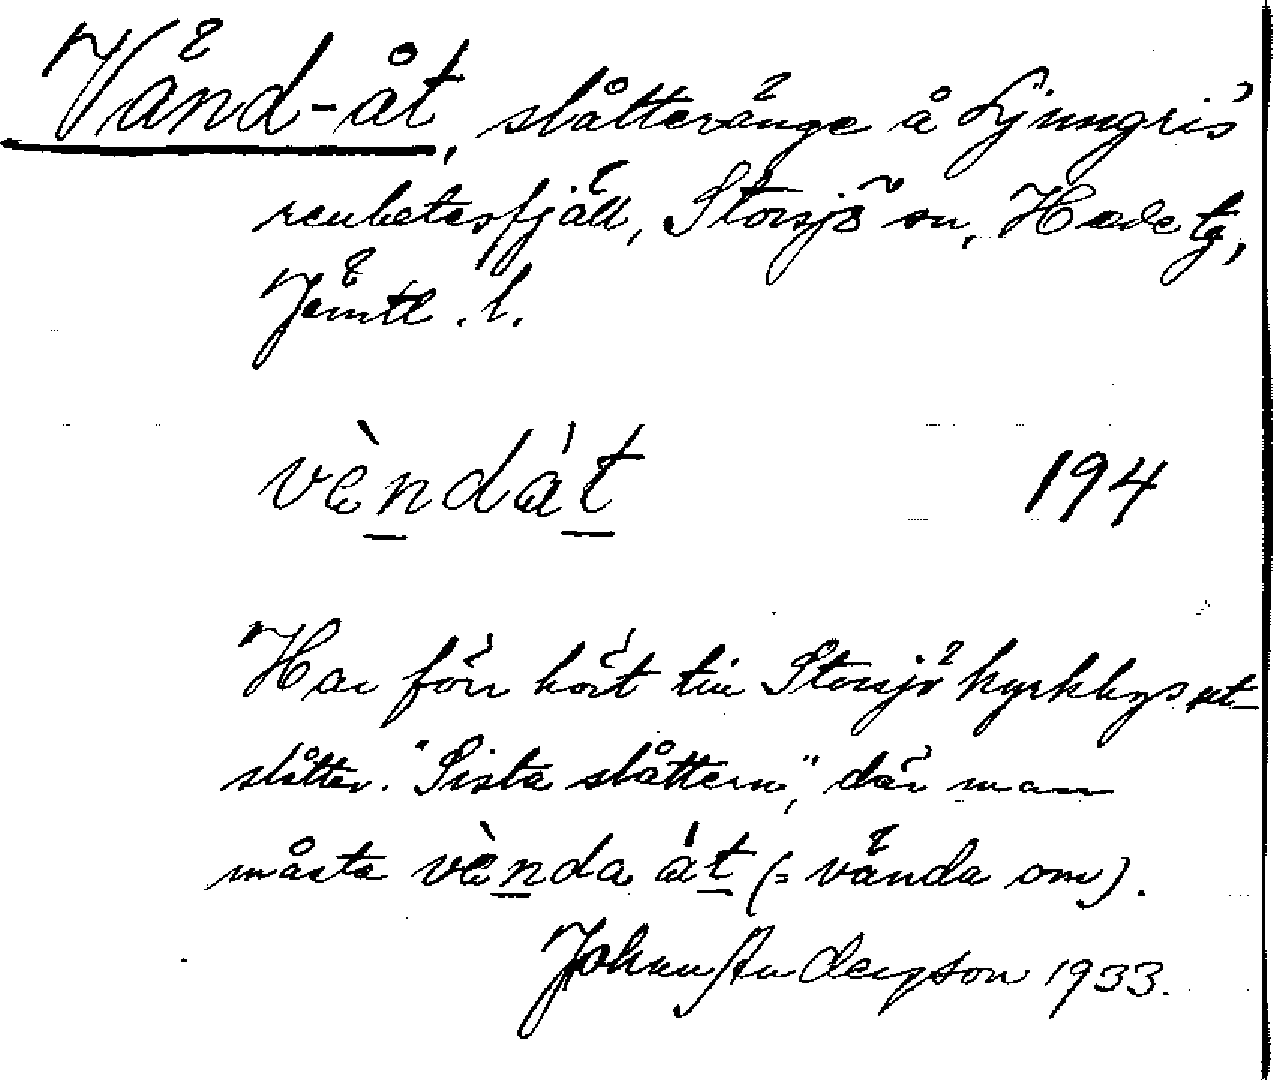 Vänd-åt, slåtteränge å Ljungris
renbetesfjäll, Storsjö sn, Hede tg,
Jämtl. l.
vèndát 194
Har förr hört till Storsjö kyrkbys ut-
slåtter. "Sista slåttern", där man
måste vènda át (= vända om).
Johan Anderzson 1933.